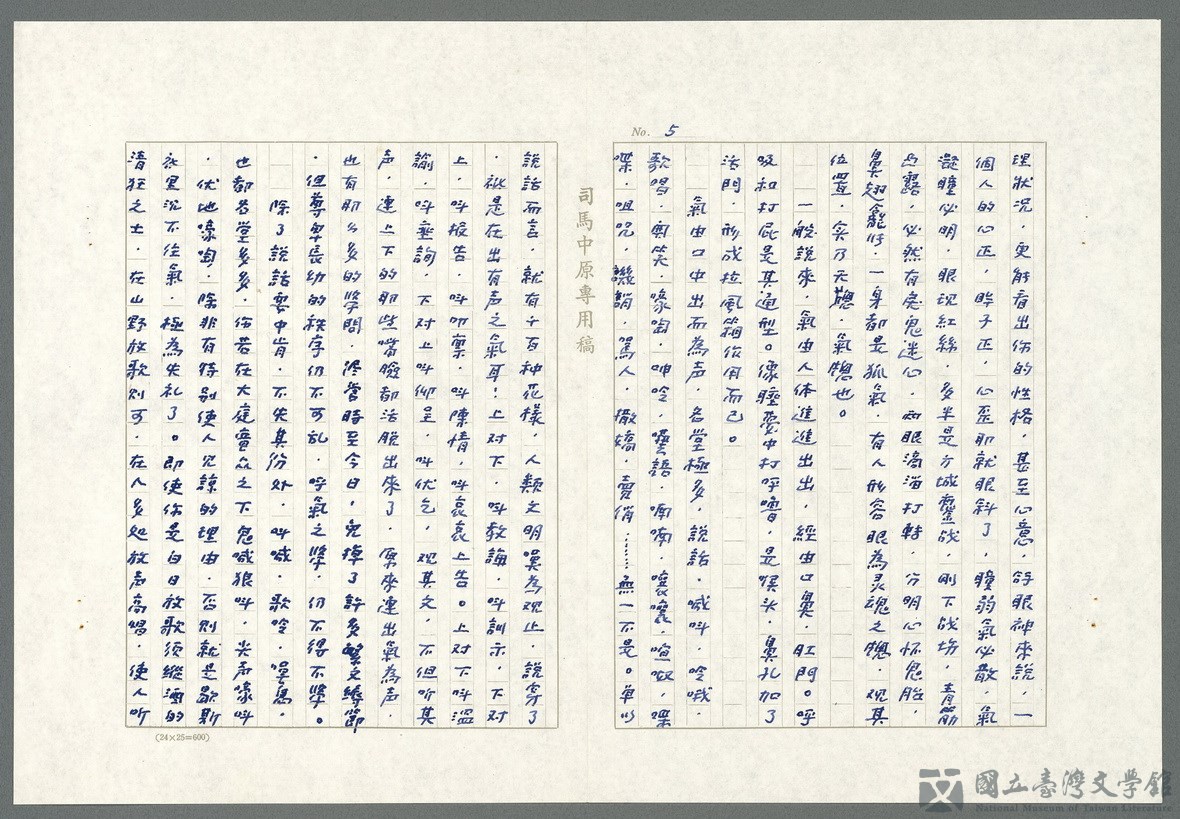 No. 5
理狀況，更能看出你的性格，甚至心意，舒眼神來說，一
個人的心正，眸子正，心歪那就眼斜了，瞳弱氣必散，氣
凝瞳必明，眼現紅絲，多半是方城鏖战，剛下战场，青筋
凸露，必然有處鬼迷心，两眼滴溜打轉，分明心怀鬼胎，
鼻翅龕㣔，一身都是狐氣，有人形容眼為灵魂之牕，观其
位置，实乃天牕，氣牕也。
一般說來，氣由人体進進出出，經由口鼻，肛門。呼
吸和打屁是其通型。像睡夢中打呼嚕，是噗头，鼻孔加了
活門，形成拉風箱作用而已。
氣由口中出而為声，名堂極多，說話，喊叫，吟哦，
歌唱，風笑，嚎啕，呻吟，囈語，喃喃，嚷嚷，喧呶，喋
喋，咀咒，譏誚，罵人，撒嬌，賣俏……無一不是。單以
司馬中原專用稿
說話而言，就有千百种花樣，人類文明嘆為观止，說穿了
，祇是在出有声之氣耳！上对下，叫教誨，叫訓示，下对
上，叫报告，叫叩稟，叫陳情，叫哀哀上告。上对下叫溫
諭，叫垂詢，下对上叫仰呈，叫伏乞，观其文，不但听其
声，連上下的那些嘴臉都活脫出來了，原來連出氣為声，
也有那么多的學問，儘管時至今日，免掉了許多繁文縟節
，但尊卑長幼的秩序仍不可乱，呼氣之學，仍不得不學。
除了說話要中肯，不失其份外，叫喊，歌吟，嘆息，
也都名堂多多，你若在大庭廣众之下鬼喊狼叫，尖声嚎叫
，伏地嚎啕，除非有特别使人見諒的理由，否則就是歇斯
底里沉不住氣，極為失礼了。即使你是白日放歌須縱酒的
清狂之士，在山野放歌則可，在人多処放声高唱，使人听
(24×25=600)
國立臺灣文學館
National Museum of Taiwan Literature